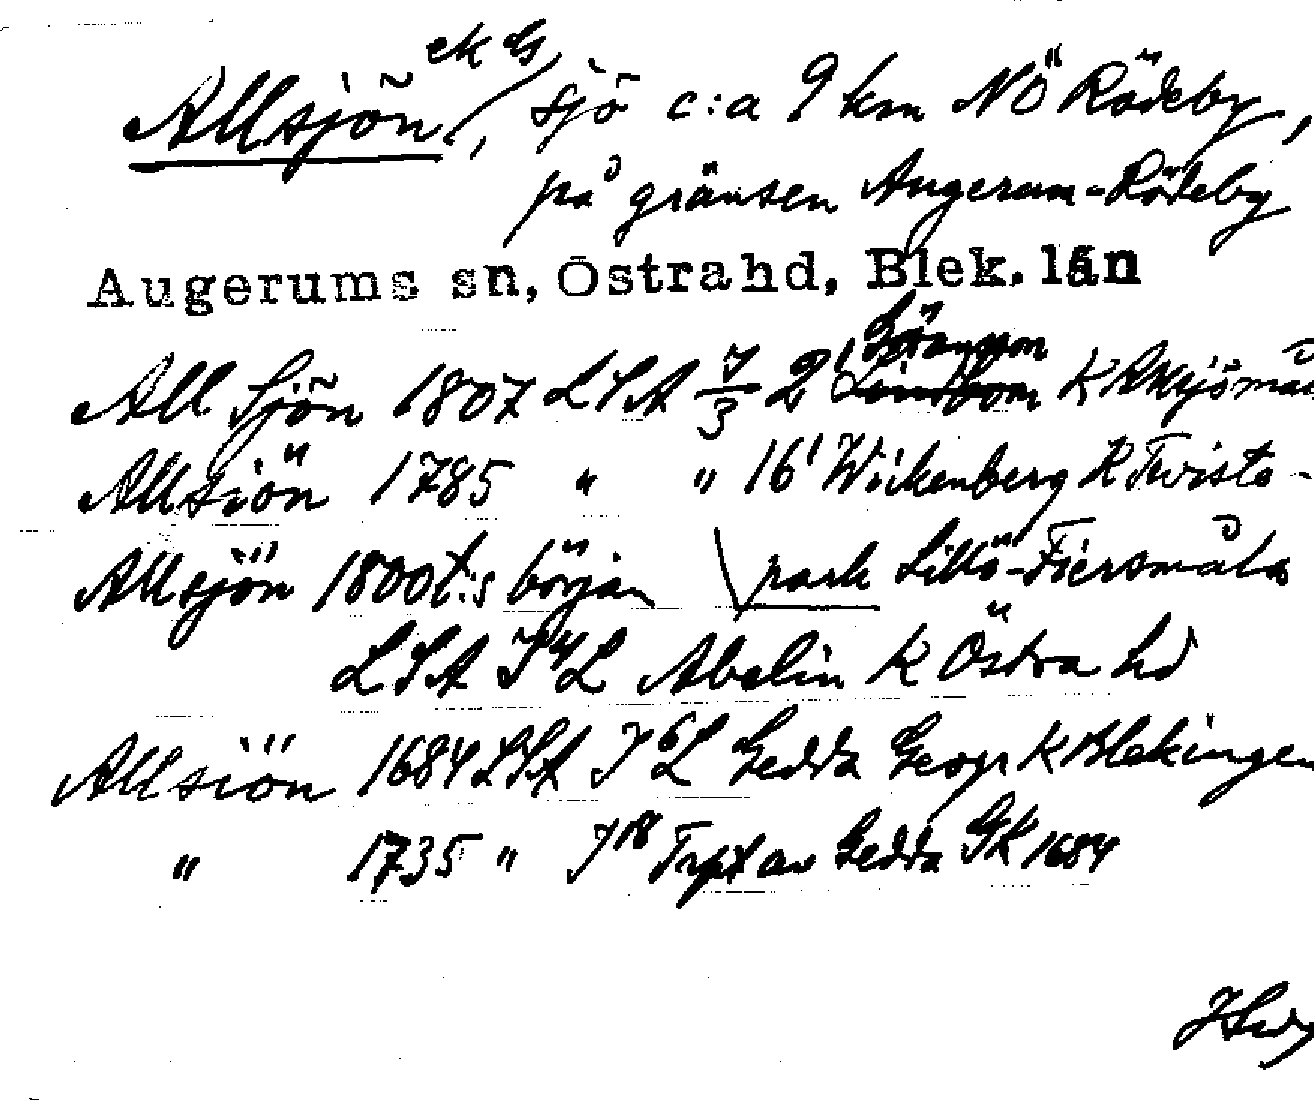 ek G
Allsjön, sjö c:a 9 km NÖ Rödeby,
på gränsen Augerum-Rödeby
Augerums sn, Östra hd, Blek. län
Göransson
All Sjön 1807 LSA 7/3 2' K
Allsiön 1785 " " 16' Wickenberg K Tvista-
Allsjön 1800t:s början park Lillö-Fiersmåla
LSA J4L Abelin K Östra hd
Allsiön 1684 LSA J6L Gedda Geogr K Blekingen
" 1735 " J18 Trpt av Gedda GK 1684